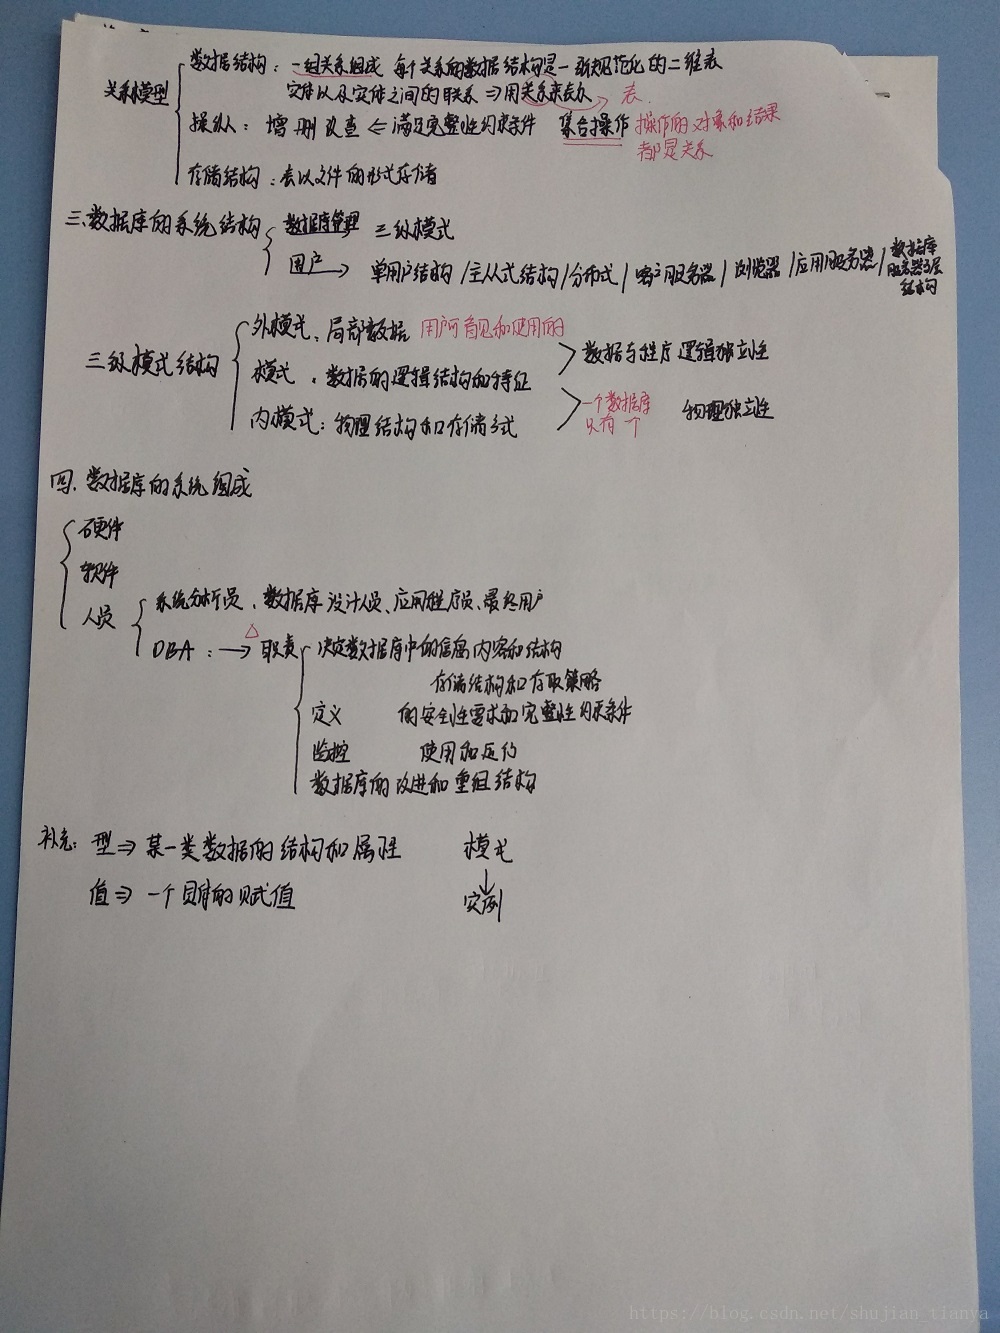 数据结构：一组关系组成 每个关系的数据结构是一张规范化的二维表
关系模型
实体以及实体之间的联系⇒用关系来表示 表
操纵：增删改查⇐满足完整性约束条件 集合操作 操作的对象和结果
都是关系
存储结构：表以文件的形式存储
三.数据库的系统结构
数据库管理 三级模式
用户→ 单用户结构/主从式结构/分布式/客户服务器/浏览器/应用服务器/数据库
服务器多层
结构
三级模式结构
外模式：局部数据 用户看见和使用的
数据与程序逻辑独立性
模式：数据的逻辑结构和特征
一个数据库
只有一个
物理独立性
内模式：物理结构和存储方式
四.数据库的系统组成
硬件
软件
人员
系统分析员、数据库设计人员、应用程序员、最终用户
DBA：→职责
决定数据库中的信息内容和结构
存储结构和存取策略
定义 的安全性要求和完整性约束条件
监控 使用和运行
数据库的改进和重组结构
补充：型⇒某一类数据的结构和属性 模式
↓
值⇒一个具体的赋值 实例
https://blog.csdn.net/shujian_tianya